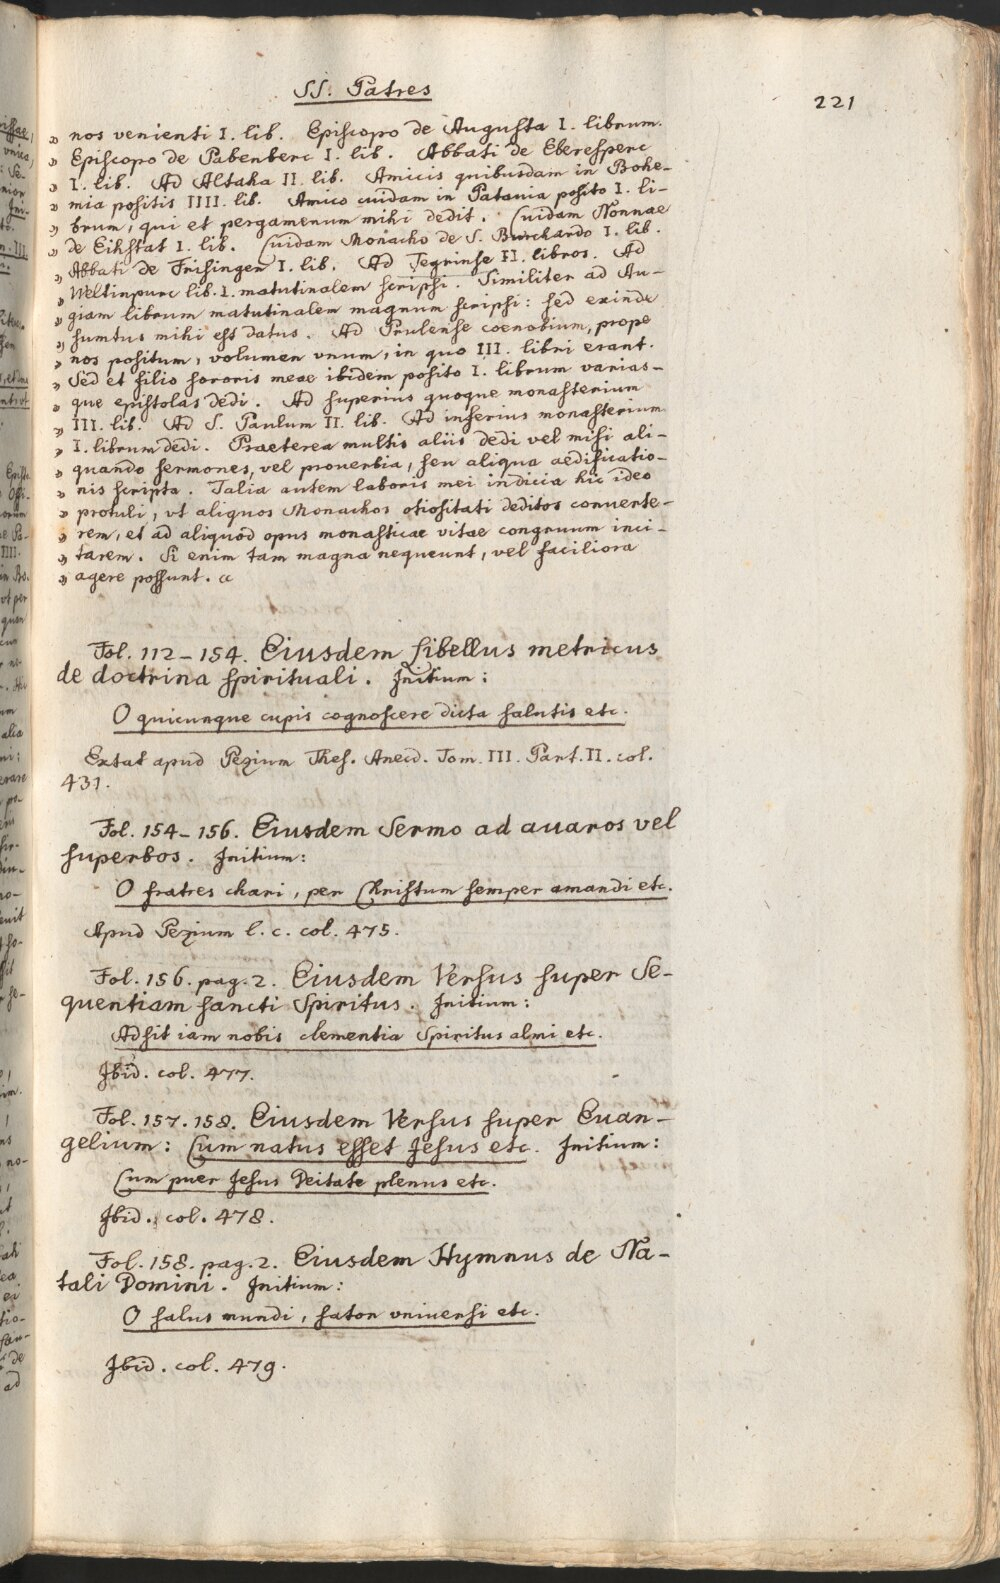 SS. Patres
221
" nos venienti I. lib. Episcopo de Augusta I. librum.
" Episcopo de Pabenberc I. lib. Abbati de Eberessperc
" I. lib. Ad Altaha II. lib. Amicis quibusdam in Bohe-
" mia positis IIII. lib. Amico cuidam in Patania posito I. li-
" brum, qui et pergamenum mihi dedit. Cuidam Nonnae
" de Eihstat I. lib. Cuidam Monacho de S. Burchardo I. lib.
" Abbati de Frisingen I. lib. Ad Tegrinse II. libros. Ad
" Weltinpurc lib. I. matutinalem scripsi. Similiter ad Au-
" giam librum matutinalem magnum scripsi: sed exinde
" sumtus mihi est datus. Ad Prulense coenobium, prope
" nos positum, volumen vnum, in quo III. libri erant.
" Sed et filio sororis meae ibidem posito I. librum varias-
" que epistolas dedi. Ad superius quoque monasterium
" III. lib. Ad S. Paulum II. lib. Ad inferius monasterium
" I. librum dedi. Praeterea multis aliis dedi vel misi ali-
" quando sermones, vel prouerbia, seu aliqua aedificatio-
" nis scripta. Talia autem laboris mei indicia hic ideo
" protuli, vt aliquos Monachos otiositati deditos conuerte-
" rem, et ad aliquod opus monasticae vitae congruum inci-
" tarem. Si enim tam magna nequeunt, vel faciliora
" agere possunt. "
Fol. 112-154. Eiusdem Libellus metricus
de doctrina spirituali. Initium:
O quicunque cupis cognoscere dicta salutis etc.
Extat apud Pezium Thes. Anecd. Tom. III. Part. II. col.
431.
Fol. 154-156. Eiusdem Sermo ad auaros vel
superbos. Initium:
O fratres chari, per Christum semper amandi etc.
Apud Pezium l. c. col. 475.
Fol. 156. pag. 2. Eiusdem Versus super Se-
quentiam sancti Spiritus. Initium:
Adsit iam nobis clementia Spiritus almi etc.
Ibid. col. 477.
Fol. 157. 158. Eiusdem Versus super Euan-
gelium: Cum natus esset Jesus etc. Initium:
Cum puer Jesus Deitate plenus etc.
Ibid. col. 478.
Fol. 158. pag. 2. Eiusdem Hymnus de Na-
tali Domini. Initium:
O salus mundi, sator vniuersi etc.
Ibid. col. 479.